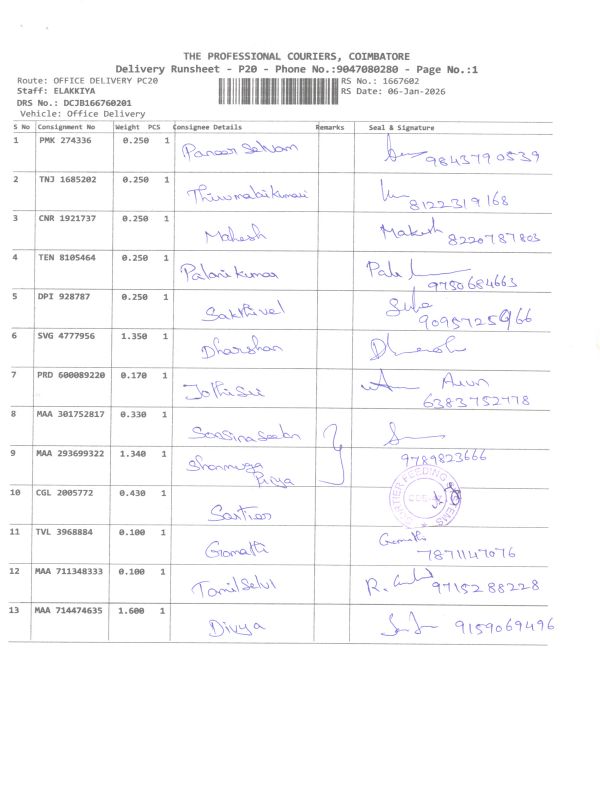 THE PROFESSIONAL COURIERS, COIMBATORE
Delivery Runsheet - P20 - Phone No.:9047080280 - Page No.:1
Route: OFFICE DELIVERY PC20 RS No.: 1667602
Staff: ELAKKIYA RS Date: 06-Jan-2026
DRS No.: DCJB166760201
Vehicle: Office Delivery
S No Consignment No Weight PCS Consignee Details Remarks Seal & Signature
1 PMK 274336 0.250 1 Paneer Selvam 9843790539
2 TNJ 1685202 0.250 1 Thirumalaikumari 8122319168
3 CNR 1921737 0.250 1 Mahesh Makesh 8220787803
4 TEN 8105464 0.250 1 Palanikumar 9750684663
5 DPI 928787 0.250 1 Sakthivel 9095725966
6 SVG 4777956 1.350 1 Dharshan
7 PRD 600089220 0.170 1 Jothisri Arun 6383752778
8 MAA 301752817 0.330 1
9 MAA 293699322 1.340 1 Shanmuga Priya 9789823666
10 CGL 2005772 0.430 1 FEEDING
11 TVL 3968884 0.100 1 Gomathi Gomathi 7871147076
12 MAA 711348333 0.100 1 Tamil Selvi 9715288228
13 MAA 714474635 1.600 1 Divya 9159069496